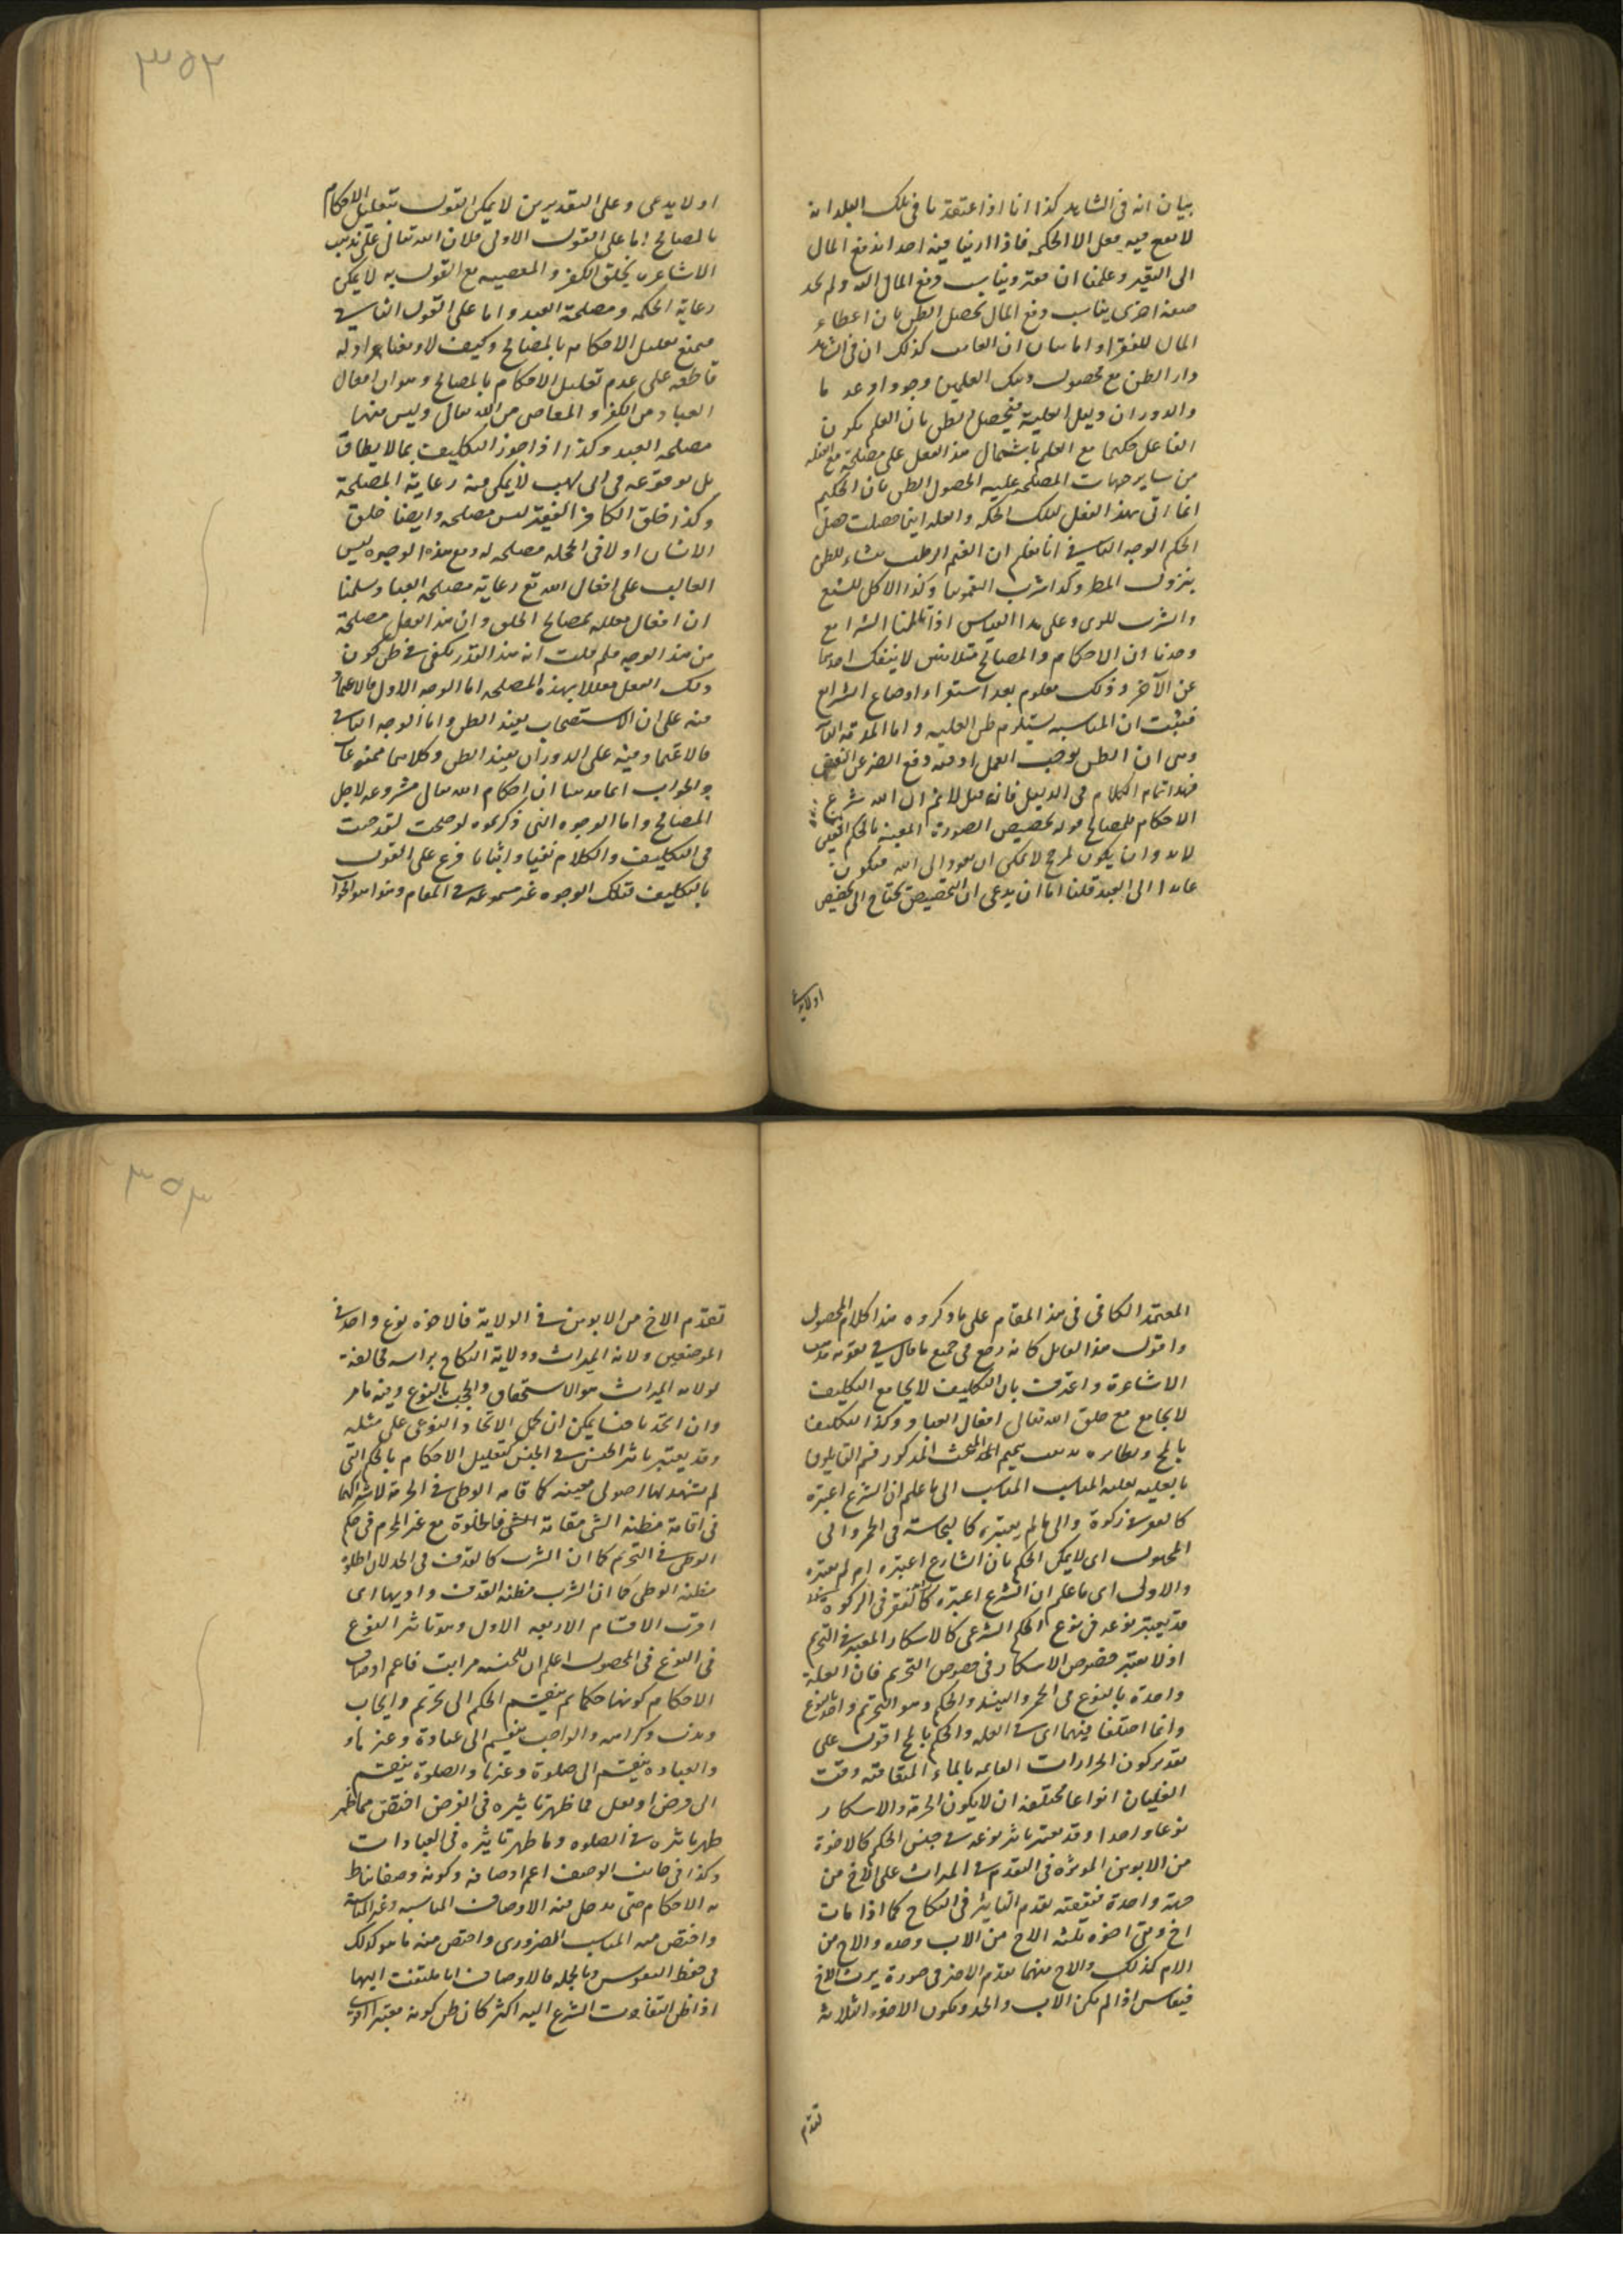 بيان انه في الشاهد كذا انا اذا اعتقدنا في ملك البلد انه
لا يفعل فعلا الا لحكمة فاذا رأينا فيه احدا دفع المال
الى الفقير وعلمنا ان فقره يناسب دفع المال اليه ولم نجد
صفة اخرى يناسب دفع المال يحصل الظن بان اعطاء
المال للفقر واما بيان ان الغائب كذلك ان في الشاهد
دار الظن مع حصول ذينك العلمين وجودا وعدما
والدوران دليل العلية فيحصل الظن بان العلم بكون
الفاعل حكيما مع العلم باشتمال هذا الفعل على مصلحة مع
من ساير جهات المصلحة عليه لحصول الظن بان الحكيم
انما اتى بهذا الفعل لتلك الحكمة والعلة اينما حصلت حصل
الحكم الوجه الثاني انا نعلم ان الغيم الرطب منشاء للظن
بنزول المطر وكذا شرب السقمونيا وكذا الاكل للشبع
والشرب للروى وعلى هذا القياس اذا تأملنا الشرايع
وجدنا ان الاحكام والمصالح متلابسين لا ينفك احدهما
عن الآخر وذلك معلوم بعد استقراء اوضاع الشرايع
فثبت ان المناسبة يستلزم ظن العلية واما المقدمة الثا
وهي ان الظن يوجب العمل اذ فيه دفع الضرر عن النفس
فهذا تمام الكلام في الدليل فان قيل لا نم ان الله شرع
الاحكام للمصالح قوله تخصيص الصورة المعينة بالحكم المعين
لا بد وان يكون لمرجح لا يمكن ان يعود الى الله فيكون
عايدا الى العبد قلنا اما ان يدعى ان التخصيص يحتاج الى مخصص
او لا يدعى
او لا يدعى وعلى التقديرين لا يمكن القول بتعليل الاحكام
بالمصالح اما على القول الاول فلان الله تعالى على مذهب
الاشاعرة يخلق الكفر والمعصية مع القول به لا يمكن
رعاية الحكمة ومصلحة العبد واما على القول الثاني
فيمتنع تعليل الاحكام بالمصالح وكيف لا ومعنا ادلة
قاطعة على عدم تعليل الاحكام بالمصالح وهو ان افعال
العباد من الكفر والمعاصي من الله تعالى وليس منها
مصلحة العبد وكذا اذا جوز التكليف بما لا يطاق
بل بوقوعه في ابي لهب لا يمكن فيه رعاية المصلحة
وكذا خلق الكافر الفقير ليس مصلحة وايضا خلق
الانسان او لا في الجملة مصلحة له ومع هذه الوجوه ليس
الغالب على افعال الله تع رعاية مصلحة العباد سلمنا
ان افعال معللة بمصالح الخلق وان هذا الفعل مصلحة
من هذا الوجه فلم قلت ان هذا القدر يكفي في ظن كون
ذلك الفعل معللا بهذه المصلحة اما الوجه الاول فالاعتماد
فيه على ان الاستصحاب يفيد الظن واما الوجه الثاني
فالاعتماد فيه على الدوران يفيد الظن وكلاهما ممنوعان
والجواب انما بينا ان احكام الله تعالى مشروعة لاجل
المصالح واما الوجوه التي ذكرتموه لو صحت لقدحت
في التكليف والكلام نفيا واثباتا فرع على القول
بالتكليف فتلك الوجوه غير مسموعة في المقام وهذا هو الجواب
٣٥٢
المعتمد الكافي في هذا المقام على ما ذكروه هذا كلام المحصول
واقول هذا القائل كانه رجع في جميع ما قال في تقوية مذهب
الاشاعرة واعترف بان التكليف لا يجامع التكليف
لا يجامع مع خلق الله تعالى افعال العباد وكذا التكليف
المذكور قسم القايلون
بالعلية المناسب الى ما علم ان الشرع اعتبره
كالفقر في زكوة والى ما لم يعتبره كالنجاسة في الخمر والى
المجهول اى لا يمكن الحكم بان الشارع اعتبره ام لم يعتبره
والاول اى ما علم ان الشرع اعتبره كالفقر في الزكوة
قد يعتبر نوعه في نوع الحكم الشرعى كالاسكار المعتبر في التحريم
اذ لا يعتبر خصوص الاسكار في خصوص التحريم فان العلة
واحدة بالنوع في الخمر والنبيذ والحكم وهو التحريم واحد بالنوع
وانما اختلفا فيهما اى في العلة والحكم بالمحل اقول على
تقدير كون الحرارات القائمة بالماء المتعاقبة وقت
الغليان انواعا مختلفة ان لا يكون الحرمة والاسكار
نوعا واحدا وقد يعتبر تأثير نوعه في جنس الحكم كالاخوة
من الابوين المؤثرة في التقدم في الميراث على الاخ من
جهة واحدة فيقتضى تقدم التأثير في النكاح كما اذا مات
اخ وبقى اخوه ثلثة الاخ من الاب وحده والاخ من
الام كذلك والاخ منهما تقدم الاخير في صورة يرث الاخ
فيقاس اذا لم يكن الاب والجد ويكون الاخوة الثلاثة
تقدم
تقدم الاخ من الابوين في الولاية فالاخوة نوع واحد في
الموضعين ولاية الميراث وولاية النكاح براسه مخالفة
لولاية الميراث هو الاستحقاق والحجب بالنوع وفيه ما مر
وان اتحدتا جنسا يمكن ان يحمل الاتحاد النوعى على مثله
وقد يعتبر تأثير الجنس في الجنس كتعليل الاحكام بالحكم التي
لم يشهد لها اصول معينة كاقامة الوطى في الحرمة لاشتراكهما
في اقامة مظنة الشى مقامة الشى فالخلوة مع غير المحرم في حكم
الوطى في التحريم كما ان الشرب كالقذف في الحد لان الخلوة
مظنة الوطى كما ان الشرب مظنة القذف واوليها اى
اقرب الاقسام الاربعة الاول وهو تأثير النوع
في النوع في المحصول اعلم ان للجنس مراتب فاعم اوصاف
الاحكام كونها حكما ثم ينقسم الحكم الى تحريم وايجاب
وندب وكراهة والواجب ينقسم الى عبادة وغيرها
والعبادة ينقسم الى صلوة وغيرها والصلوة ينقسم
الى فرض او نفل فما ظهر تأثيره في الفرض اخص مما ظهر
ظهر تأثيره في الصلوة وما ظهر تأثيره في العبادات
وكذا في جانب الوصف اعم اوصافه وكونه وصفا يناط
به الاحكام حتى يدخل فيه الاوصاف المناسبة وغير المناسبة
واخص منه المناسب الضرورى واخص منه ما هو كذلك
في حفظ النفوس وبالجملة فالاوصاف انما يلتفت اليها
اذا ظن التفات الشرع اليه اكثر كان ظن كونه معتبرا اقوى
٣٥٣